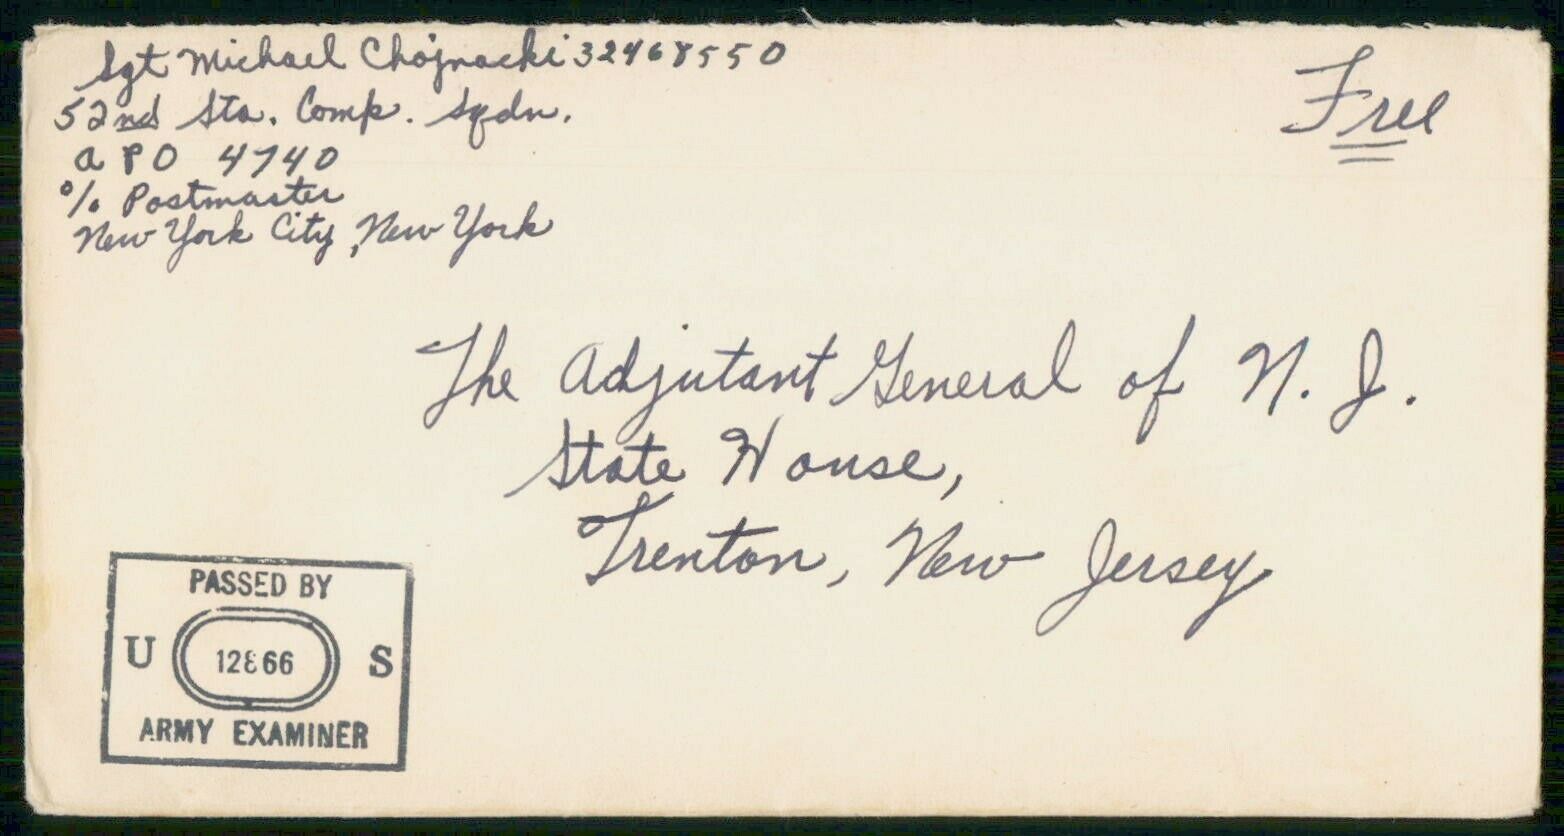 Sgt Michael Chojnacki 32468550
Free
52nd Sta. Comp. Sqdn.
A P O 4740
% Postmaster
New York City, New York
The Adjutant General of N. J.
State House,
Trenton, New Jersey
PASSED BY
U 12866 S
ARMY EXAMINER